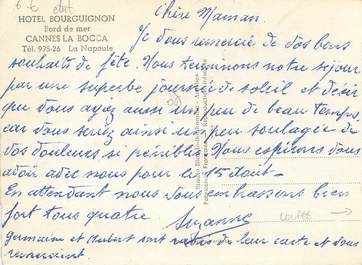 6 € état
HOTEL BOURGUIGNON
Bord de mer
CANNES LA BOCCA
Tél. 975-26 La Napoule
Chère Maman.
Je vous remercie de vos bons
souhaits de fête. Nous terminons notre séjour
par une superbe journée de soleil et désir
que vous ayez aussi un peu de beau temps.
car vous seriez ainsi un peu soulagée de
vos douleurs si pénibles. Nous espérons vous
avoir avec nous pour le 15 août.
En attendant nous vous embrassons bien
fort tous quatre
Suzanne
Germaine et Hubert sont ravis de leur carte et vous
remercient.